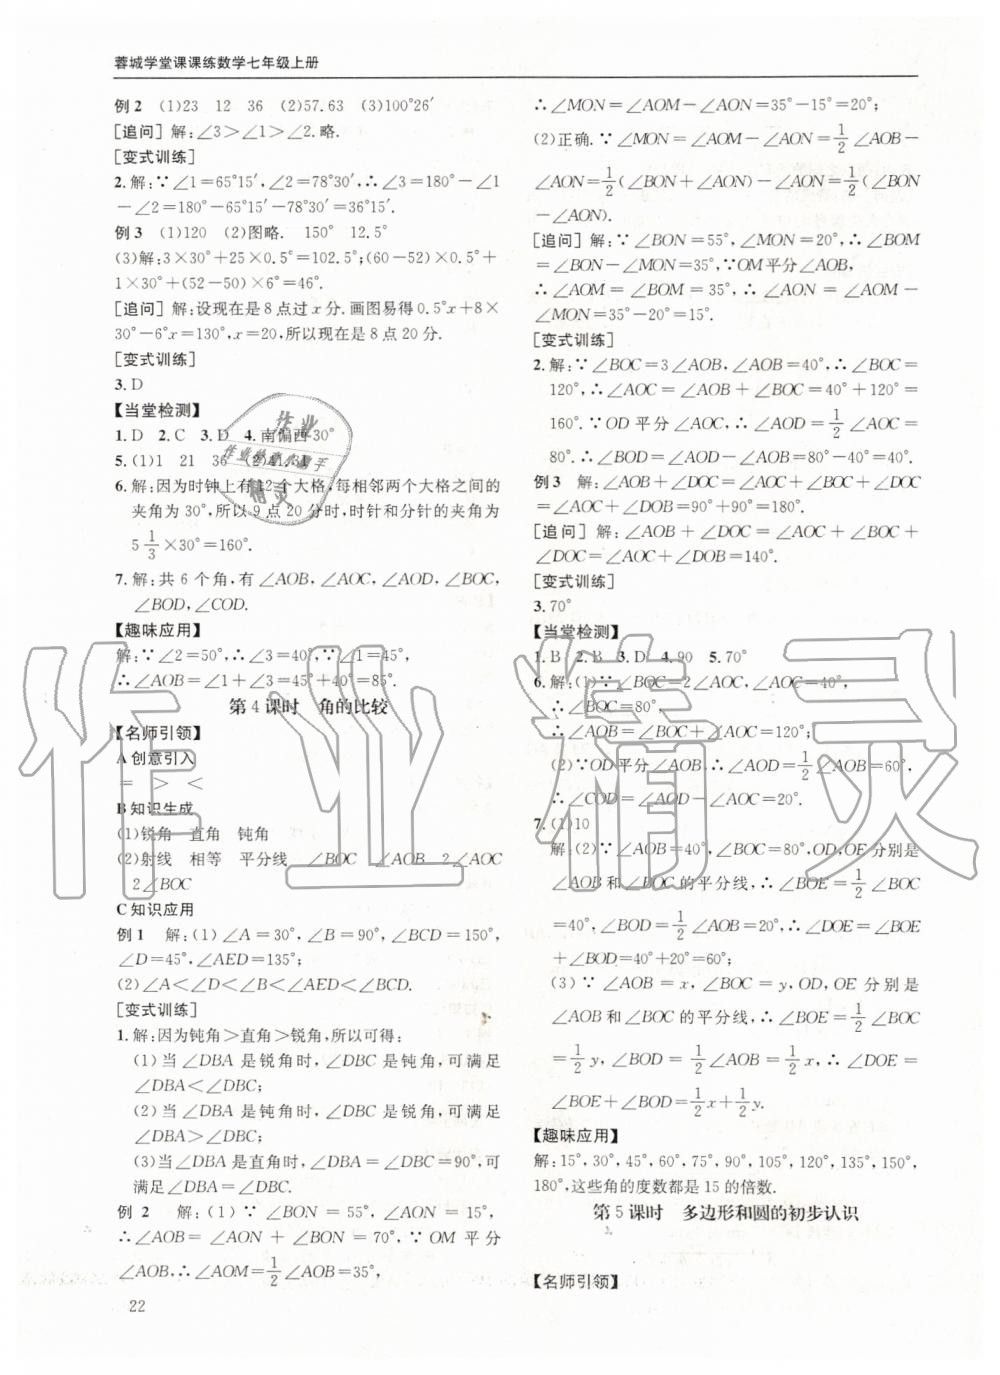 蓉城学堂课课练数学七年级上册
例2 (1)23 12 36 (2)57.63 (3)100°26′
[追问] 解:∠3>∠1>∠2.略.
[变式训练]
2.解:∵∠1=65°15′,∠2=78°30′,∴∠3=180°-∠1
-∠2=180°-65°15′-78°30′=36°15′.
例3 (1)120 (2)图略. 150° 12.5°
(3)解:3×30°+25×0.5°=102.5°;(60-52)×0.5°+
1×30°+(52-50)×6°=46°.
[追问] 解:设现在是8点过x分.画图易得0.5°x+8×
30°-6°x=130°,x=20,所以现在是8点20分.
[变式训练]
3.D
【当堂检测】
1.D 2.C 3.D 4.南偏西30°
5.(1)1 21 36 (2)41.31
6.解:因为时钟上有12个大格,每相邻两个大格之间的
夹角为30°,所以9点20分时,时针和分针的夹角为
5 1/3×30°=160°.
7.解:共6个角,有∠AOB,∠AOC,∠AOD,∠BOC,
∠BOD,∠COD.
【趣味应用】
解:∵∠2=50°,∴∠3=40°,∵∠1=45°,
∴∠AOB=∠1+∠3=45°+40°=85°.
第4课时 角的比较
【名师引领】
A 创意引入
= > <
B 知识生成
(1)锐角 直角 钝角
(2)射线 相等 平分线 ∠BOC ∠AOB 2∠AOC
2∠BOC
C 知识应用
例1 解:(1)∠A=30°,∠B=90°,∠BCD=150°,
∠D=45°,∠AED=135°;
(2)∠A<∠D<∠B<∠AED<∠BCD.
[变式训练]
1.解:因为钝角>直角>锐角,所以可得:
(1)当∠DBA是锐角时,∠DBC是钝角,可满足
∠DBA<∠DBC;
(2)当∠DBA是钝角时,∠DBC是锐角,可满足
∠DBA>∠DBC;
(3)当∠DBA是直角时,∠DBA=∠DBC=90°,可
满足∠DBA=∠DBC.
例2 解:(1)∵∠BON=55°,∠AON=15°,
∴∠AOB=∠AON+∠BON=70°,∵OM平分
∠AOB,∴∠AOM=1/2∠AOB=35°,
22
∴∠MON=∠AOM-∠AON=35°-15°=20°;
(2)正确.∵∠MON=∠AOM-∠AON=1/2∠AOB-
∠AON=1/2(∠BON+∠AON)-∠AON=1/2(∠BON
-∠AON).
[追问] 解:∵∠BON=55°,∠MON=20°,∴∠BOM
=∠BON-∠MON=35°,∵OM平分∠AOB,
∴∠AOM=∠BOM=35°,∴∠AON=∠AOM-
∠MON=35°-20°=15°.
[变式训练]
2.解:∵∠BOC=3∠AOB,∠AOB=40°,∴∠BOC=
120°,∴∠AOC=∠AOB+∠BOC=40°+120°=
160°.∵OD平分∠AOC,∴∠AOD=1/2∠AOC=
80°.∴∠BOD=∠AOD-∠AOB=80°-40°=40°.
例3 解:∠AOB+∠DOC=∠AOC+∠BOC+∠DOC
=∠AOC+∠DOB=90°+90°=180°.
[追问] 解:∠AOB+∠DOC=∠AOC+∠BOC+
∠DOC=∠AOC+∠DOB=140°.
[变式训练]
3.70°
【当堂检测】
1.B 2.B 3.D 4.90 5.70°
6.解:(1)∵∠BOC=2∠AOC,∠AOC=40°,
∴∠BOC=80°,
∴∠AOB=∠BOC+∠AOC=120°;
(2)∵OD平分∠AOB,∴∠AOD=1/2∠AOB=60°.
∴∠COD=∠AOD-∠AOC=20°.
7.(1)10
解:(2)∵∠AOB=40°,∠BOC=80°,OD,OE分别是
∠AOB和∠BOC的平分线,∴∠BOE=1/2∠BOC
=40°,∠BOD=1/2∠AOB=20°,∴∠DOE=∠BOE
+∠BOD=40°+20°=60°;
(3)∵∠AOB=x,∠BOC=y,OD,OE分别是
∠AOB和∠BOC的平分线,∴∠BOE=1/2∠BOC
=1/2y,∠BOD=1/2∠AOB=1/2x,∴∠DOE=
∠BOE+∠BOD=1/2x+1/2y.
【趣味应用】
解:15°,30°,45°,60°,75°,90°,105°,120°,135°,150°,
180°,这些角的度数都是15的倍数.
第5课时 多边形和圆的初步认识
【名师引领】
作业精灵